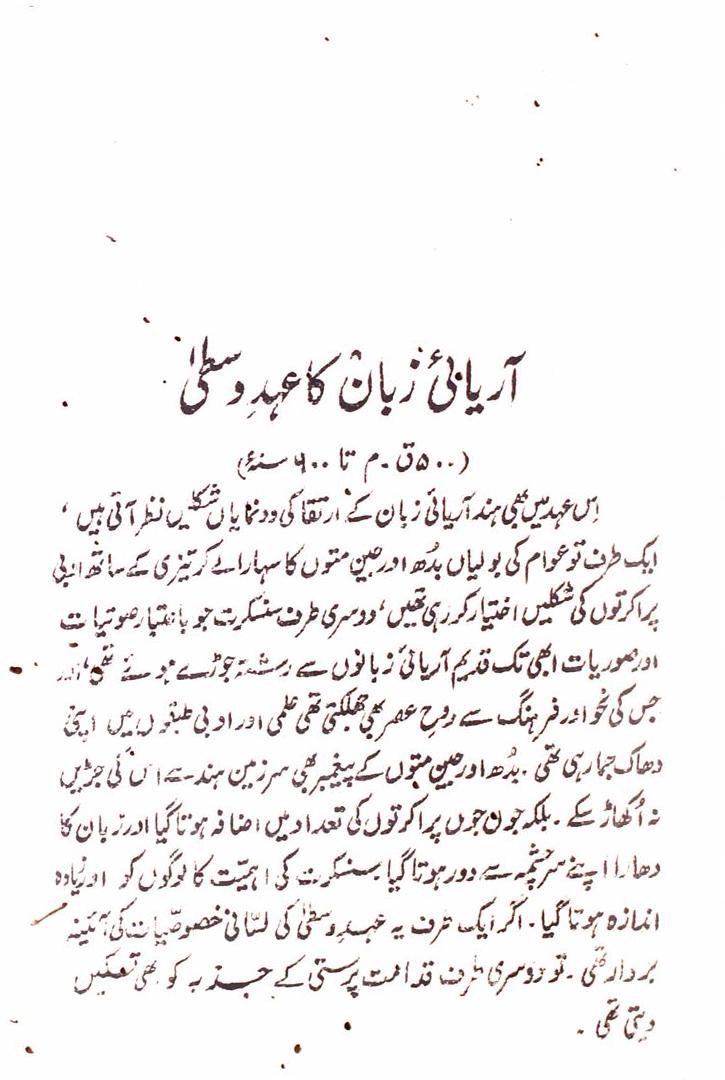 آریائی زبان کا عہدِ وسطیٰ
(۵۰۰ ق ۔ م تا ۶۰۰ سنہء)
اِس عہد میں بھی ہند آریائی زبان کے ارتقا کی دو نمایاں شکلیں نظر آتی ہیں ،
ایک طرف تو عوام کی بولیاں بدُھ اور جین متوں کا سہارا لے کر تیزی کے ساتھ ادبی
پراکرتوں کی شکلیں اختیار کر رہی تھیں ، دوسری طرف سنسکرت جو با عتبار صوتیات
اور صوریات ابھی تک قدیم آریائی زبانوں سے رشتہ جوڑے ہوئے تھی ، اور
جس کی نحو اور فرہنگ سے روحِ عصر بھی جھلکتی تھی علمی اور ادبی طبقوں میں اپنی
دھاک جما رہی تھی ۔ بدُھ اور جین متوں کے پیغمبر بھی سرزمین ہند سے اس کی جڑیں
نہ اُکھاڑ سکے ۔ بلکہ جوں جوں پراکرتوں کی تعداد میں اضافہ ہوتا گیا اور زبان کا
دھارا اپنے سر چشمہ سے دور ہوتا گیا سنسکرت کی اہمیّت کا لوگوں کو اور زیادہ
اندازہ ہوتا گیا ۔ اگر ایک طرف یہ عہدِ وسطیٰ کی لسّانی خصوصیّات کی آئینہ
بردار تھی ۔ تو دوسری طرف قدامت پرستی کے جذبہ کو بھی تسکین
دیتی تھی ۔